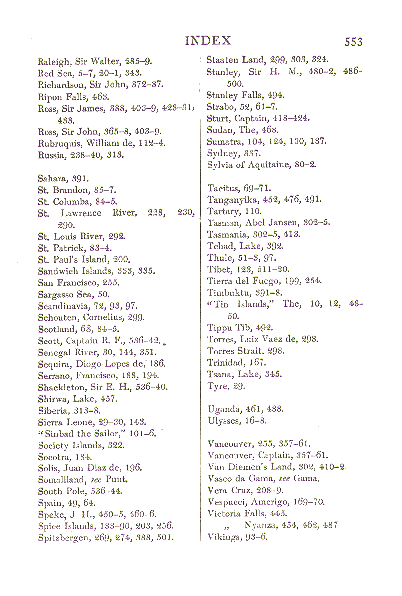 INDEX 553
Raleigh, Sir Walter, 285-9.
Red Sea, 5-7, 20-1, 343.
Richardson, Sir John, 372-87.
Ripon Falls, 463.
Ross, Sir James, 388, 403-9, 423-31,
433.
Ross, Sir John, 365-8, 403-9.
Rubruquis, William de, 112-4.
Russia, 238-40, 313.
Sahara, 391.
St. Brandon, 85-7.
St. Columba, 84-5.
St. Lawrence River, 228, 230,
290.
St. Louis River, 292.
St. Patrick, 83-4.
St. Paul's Island, 200.
Sandwich Islands, 333, 335.
San Francisco, 255.
Sargasso Sea, 50.
Scandinavia, 72, 93, 97.
Schouten, Cornelius, 299.
Scotland, 63, 84-5.
Scott, Captain R. F., 536-42.
Senegal River, 30, 144, 351.
Sequira, Diogo Lopes de, 186.
Serrano, Francisco, 188, 194.
Shackleton, Sir E. H., 536-40.
Shirwa, Lake, 457.
Siberia, 313-8.
Sierra Leone, 29-30, 143.
"Sinbad the Sailor," 101-6.
Society Islands, 322.
Socotra, 184.
Solis, Juan Diaz de, 196.
Somaliland, see Punt.
South Pole, 536-44.
Spain, 49, 64.
Speke, J. H., 450-5, 460-6.
Spice Islands, 183-90, 203, 256.
Spitzbergen, 269, 274, 388, 501.
Staaten Land, 299, 303, 324.
Stanley, Sir H. M., 480-2, 486-
500.
Stanley Falls, 494.
Strabo, 52, 61-7.
Sturt, Captain, 418-424.
Sudan, The, 468.
Sumatra, 104, 124, 130, 187.
Sydney, 337.
Sylvia of Aquitaine, 80-2.
Tacitus, 69-71.
Tanganyika, 452, 476, 491.
Tartary, 110.
Tasman, Abel Jansen, 302-5.
Tasmania, 302-5, 413.
Tchad, Lake, 392.
Thule, 51-3, 97.
Tibet, 123, 511-20.
Tierra del Fuego, 199, 264.
Timbuktu, 391-8.
"Tin Islands," The, 10, 12, 48-
50.
Tippu Tib, 492.
Torres, Luiz Vaez de, 298.
Torres Strait, 298.
Trinidad, 167.
Tsana, Lake, 345.
Tyre, 29.
Uganda, 461, 488.
Ulysses, 16-8.
Vancouver, 255, 357-61.
Vancouver, Captain, 357-61.
Van Diemen's Land, 302, 410-2
Vasco da Gama, see Gama.
Vera Cruz, 208-9.
Vespucci, Amerigo, 169-70.
Victoria Falls, 445.
„ Nyanza, 454, 462, 487
Vikings, 93-6.